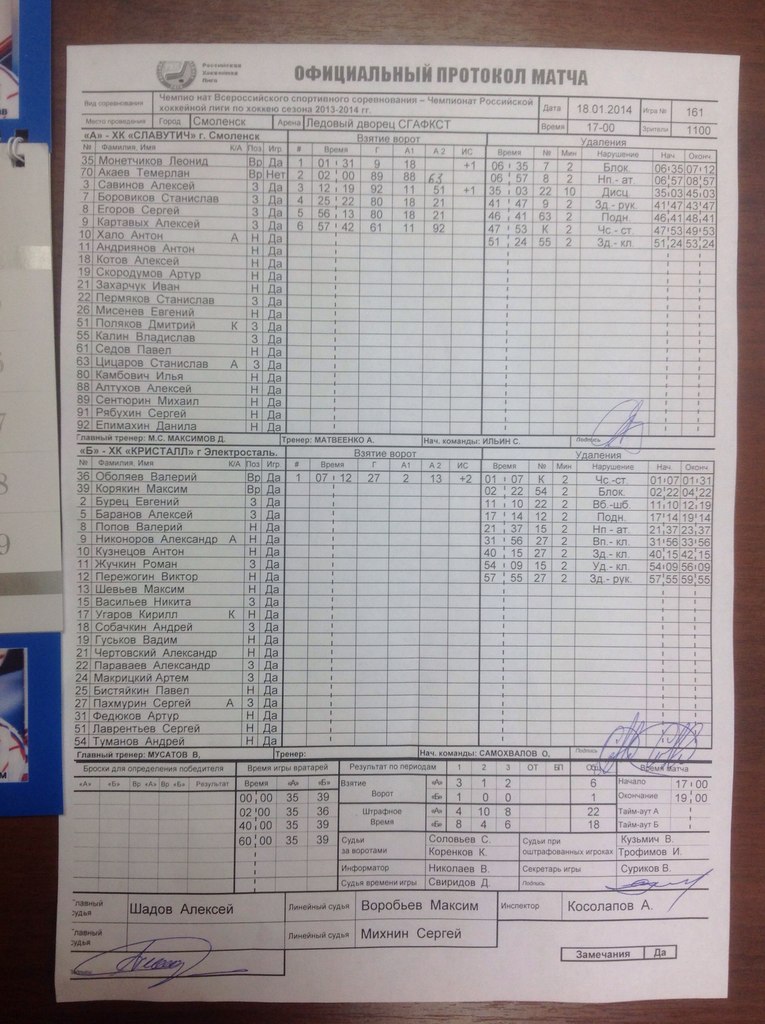 Российская
Хоккейная
Лига
ОФИЦИАЛЬНЫЙ ПРОТОКОЛ МАТЧА
Вид соревнования Чемпио нат Всероссийского спортивного соревнования – Чемпионат Российской хоккейной лиги по хоккею сезона 2013-2014 гг. Дата 18.01.2014 Игра № 161
Место проведения Город Смоленск Арена Ледовый дворец СГАФКСТ Время 17-00 Зрители 1100
«А» - ХК «СЛАВУТИЧ» г. Смоленск Взятие ворот Удаления
№ Фамилия, Имя К/А Поз. Игр. # Время Г А1 А 2 ИС Время № Мин Нарушение Нач. Оконч.
35 Монетчиков Леонид Вр Да 1 01 31 9 18 +1 06 35 7 2 Блок. 06 35 07 12
70 Акаев Темерлан Вр Нет 2 02 00 89 88 63 06 57 8 2 Нп.- ат. 06 57 08 57
3 Савинов Алексей З Да 3 12 19 92 11 51 +1 35 03 22 10 Дисц. 35 03 45 03
7 Боровиков Станислав З Да 4 25 22 80 18 21 41 47 9 2 Зд.- рук. 41 47 43 47
8 Егоров Сергей З Да 5 56 13 80 18 21 46 41 63 2 Подн. 46 41 48 41
9 Картавых Алексей З Да 6 57 42 61 11 92 47 53 К 2 Чс.- ст. 47 53 49 53
10 Хало Антон А Н Да 51 24 55 2 Зд.- кл. 51 24 53 24
11 Андриянов Антон Н Да
18 Котов Алексей Н Да
19 Скородумов Артур Н Да
21 Захарчук Иван Н Да
22 Пермяков Станислав З Да
26 Мисенев Евгений Н Да
51 Поляков Дмитрий К З Да
55 Калин Владислав З Да
61 Седов Павел Н Да
63 Цицаров Станислав А З Да
80 Камбович Илья Н Да
88 Алтухов Алексей Н Да
89 Сентюрин Михаил Н Да
91 Рябухин Сергей Н Да
92 Епимахин Данила Н Да
Главный тренер: М.С. МАКСИМОВ Д. Тренер: МАТВЕЕНКО А. Нач. команды: ИЛЬИН С. Подпись
«Б» - ХК «КРИСТАЛЛ» г Электросталь. Взятие ворот Удаления
№ Фамилия, Имя К/А Поз Игр # Время Г А1 А 2 ИС Время № Мин Нарушение Нач. Оконч.
36 Оболяев Валерий Вр Да 1 07 12 27 2 13 +2 01 07 К 2 Чс.-ст. 01 07 01 31
39 Корякин Максим Вр Да 02 22 54 2 Блок. 02 22 04 22
2 Бурец Евгений З Да 11 10 22 2 Вб.-шб. 11 10 12 19
5 Баранов Алексей З Да 17 14 12 2 Подн. 17 14 19 14
8 Попов Валерий Н Да 21 37 15 2 Нп - ат. 21 37 23 37
9 Никоноров Александр А Н Да 31 56 27 2 Вп.- кл. 31 56 33 56
10 Кузнецов Антон Н Да 40 15 27 2 Зд.- кл. 40 15 42 15
11 Жучкин Роман З Да 54 09 15 2 Уд.- кл. 54 09 56 09
12 Пережогин Виктор Н Да 57 55 27 2 Зд.- рук. 57 55 59 55
13 Шевьев Максим Н Да
15 Васильев Никита З Да
17 Угаров Кирилл К Н Да
18 Собачкин Андрей З Да
19 Гуськов Вадим Н Да
21 Чертовский Александр Н Да
22 Параваев Александр З Да
24 Макрицкий Артем З Да
25 Бистяйкин Павел Н Да
27 Пахмурин Сергей А З Да
31 Федюков Артур Н Да
51 Лаврентьев Сергей Н Да
54 Туманов Андрей Н Да
Главный тренер: МУСАТОВ В. Тренер: Нач. команды: САМОХВАЛОВ О. Подпись
Броски для определения победителя Время игры вратарей Результат по периодам 1 2 3 ОТ БП Общ Время матча
«А» «Б» Вр «А» Вр «Б» Результат Время «А» «Б» Взятие Ворот «А» 3 1 2 6 Начало 17 00
00 00 35 39 «Б» 1 0 0 1 Окончание 19 00
02 00 35 36 Штрафное Время «А» 4 10 8 22 Тайм-аут А
40 00 35 39 «Б» 8 4 6 18 Тайм-аут Б
60 00 35 39 Судьи за воротами Соловьев С. Коренков К. Судьи при оштрафованных игроках Кузьмич В. Трофимов И.
Информатор Николаев В. Секретарь игры Суриков В.
Судья времени игры Свиридов Д. Подпись
Главный судья Шадов Алексей Линейный судья Воробьев Максим Инспектор Косолапов А.
Главный судья Линейный судья Михнин Сергей
Замечания Да